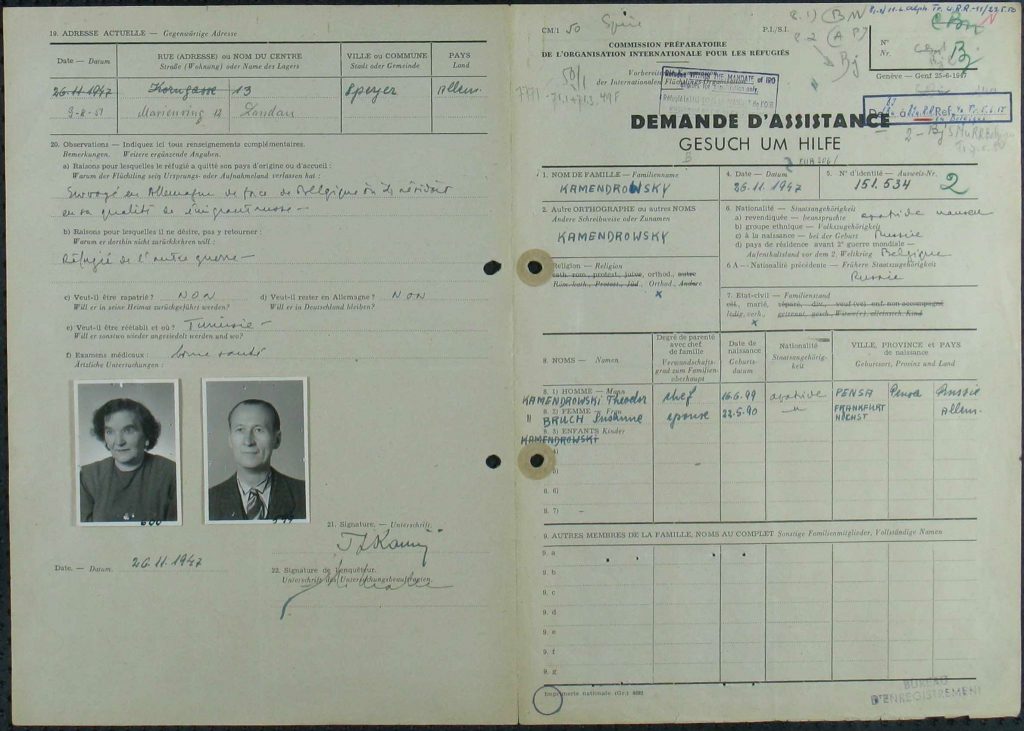 19. ADRESSE ACTUELLE — Gegenwärtige Adresse
Date — Datum
RUE (ADRESSE) ou NOM DU CENTRE
Straße (Wohnung) oder Name des Lagers
VILLE ou COMMUNE
Stadt oder Gemeinde
PAYS
Land
26-11-1947 Korngasse 13 Speyer Allem.
Marienring 12 Landau
20. Observations — Indiquez ici tous renseignements complémentaires.
Bemerkungen. Weitere ergänzende Angaben.
a) Raisons pour lesquelles le réfugié a quitté son pays d'origine ou d'accueil :
Warum der Flüchtling sein Ursprungs- oder Aufnahmeland verlassen hat :
en Allemagne de force de Belgique où il résidait
en sa qualité de émigrant russe —
b) Raisons pour lesquelles il ne désire, pas y retourner :
Warum er dorthin nicht zurückkehren will :
Réfugié de l'autre guerre —
c) Veut-il être rapatrié ? NON
Will er in seine Heimat zurückgeführt werden?
d) Veut-il rester en Allemagne ? NON
Will er in Deutschland bleiben?
e) Veut-il être réétabli et où ? Tunisie —
Will er sonstwo wieder angesiedelt werden und wo?
f) Examens médicaux : bonne santé
Ärztliche Untersuchungen :
21. Signature. — Unterschrift.
Date. — Datum. 26.11.1947
22. Signature de l'enquêteur.
Unterschrift des Untersuchungsbeauftragten.
CM/1
P.I./S.I.
COMMISSION PRÉPARATOIRE
DE L'ORGANISATION INTERNATIONALE POUR LES RÉFUGIÉS
der Internationalen
N°
Nr.
Genève — Genf 25-6-1947
DEMANDE D'ASSISTANCE
GESUCH UM HILFE
1. NOM DE FAMILLE — Familienname
KAMENDROWSKY
4. Date — Datum
26.11.1947
5. N° d'identité — Ausweis-Nr.
151.534
2
2. Autre ORTHOGRAPHE ou autres NOMS
Andere Schreibweise oder Zunamen
KAMENDROWSKY
6. Nationalité — Staatsangehörigkeit
a) revendiquée — beanspruchte apatride
b) groupe ethnique — Volkszugehörigkeit
c) à la naissance — bei der Geburt Russie
d) pays de résidence avant 2e guerre mondiale —
Aufenthaltsland vor dem 2. Weltkrieg Belgique
6 A — Nationalité précédente — Frühere Staatsangehörigkeit
Russie
Religion — Religion
cath. rom., protest., juive, orthod., autre
Röm.-kath., Protest., Jüd., Orthod., Andere
x
7. Etat-civil — Familienstand
cél., marié, séparé, div., veuf (ve) enf. non accompagné
x
8. NOMS — Namen
Degré de parenté
avec chef
de famille
Verwandschafts-
grad zum Familien-
oberhaupt
Date de
naissance
Geburts-
datum
Nationalité
Staatsangehörig-
keit
VILLE, PROVINCE et PAYS
de naissance
Geburtsort, Provinz und Land
8. 1) HOMME — Mann
KAMENDROWSKI Theodor chef 16.6.99 apatride PENSA Pensa Russie
8. 2) FEMME — Frau
" BRUCH Susanne épouse 22.5.90 — " — FRANKFURT Allem.
HÖCHST
8. 3) ENFANTS Kinder
KAMENDROWSKI
8. 6)
8. 7)
9. AUTRES MEMBRES DE LA FAMILLE, NOMS AU COMPLET Sonstige Familienmitglieder, Vollständige Namen
9. a
9. b
9. c
9. d
9. e
9. f
9. g
Imprimerie nationale (Gr.)
BUREAU
D'ENREGISTREMENT